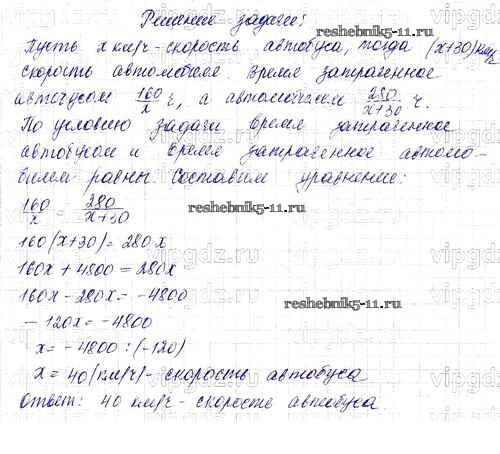 Решение задачи:
Пусть x км/ч - скорость автобуса, тогда (x+30) км/ч
скорость автомобиля. Время затраченное
автобусом 160/x ч, а автомобилем 280/x+30 ч.
По условию задачи время затраченное
автобусом и время затраченное автомо-
билем равны. Составим уравнение:
160/x = 280/x+30
160(x+30) = 280x
160x + 4800 = 280x
160x - 280x = -4800
- 120x = -4800
x = -4800 : (-120)
x = 40 (км/ч) - скорость автобуса
Ответ: 40 км/ч - скорость автобуса.
reshebnik5-11.ru
reshebnik5-11.ru
reshebnik5-11.ru
reshebnik5-11.ru
vipgdz.ru